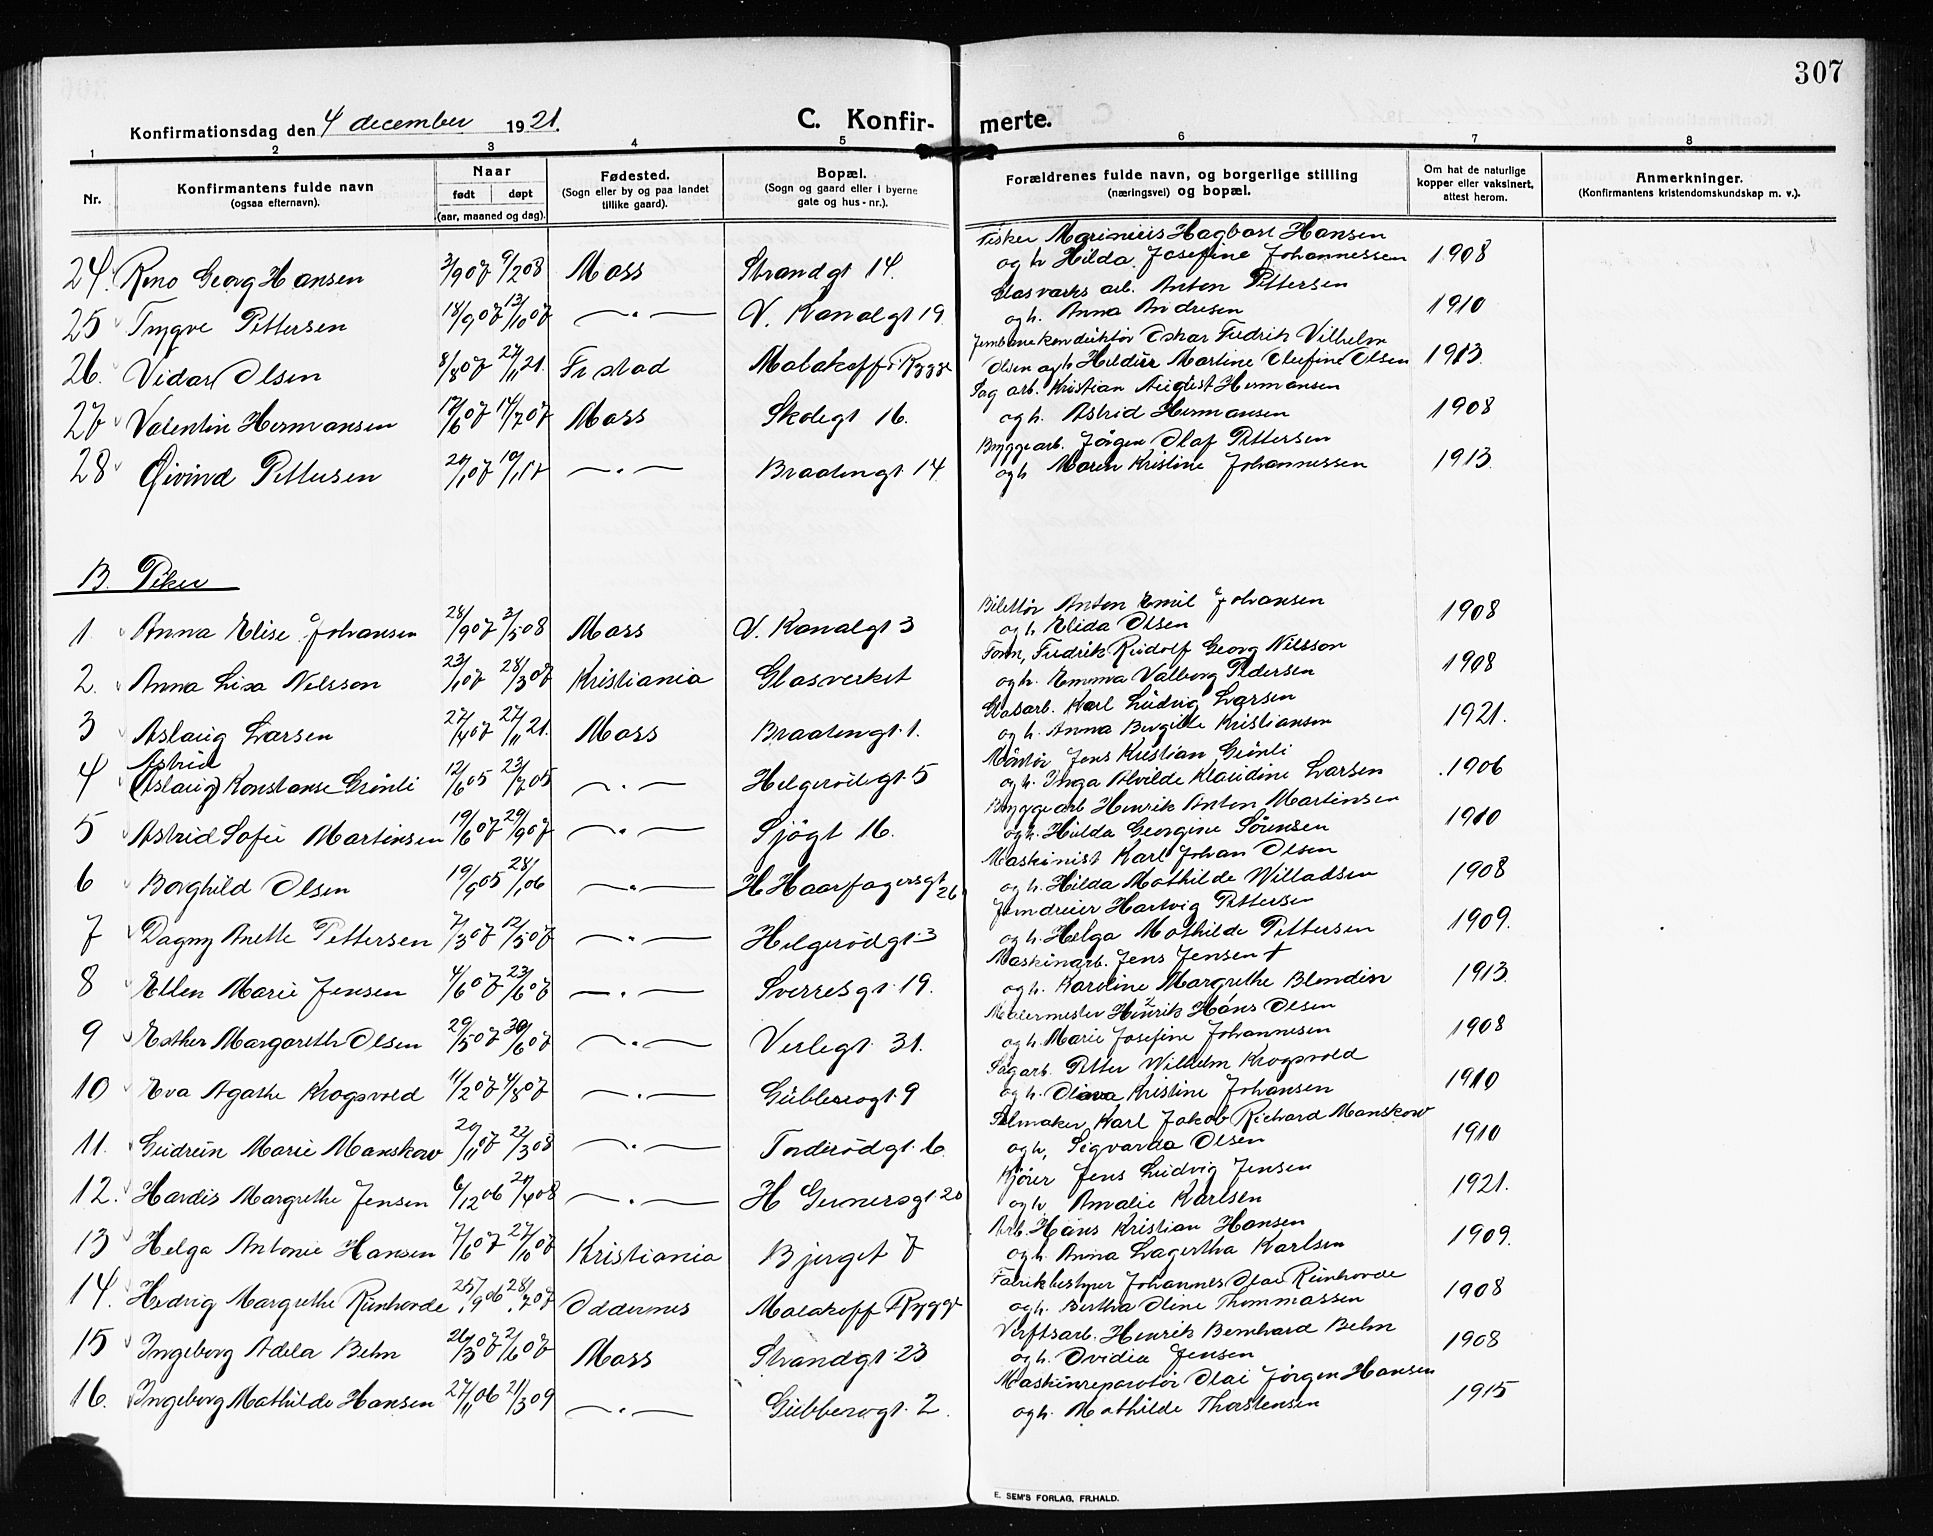 307
Konfirmationsdag den 4 december 1921.
C. Konfir- merte.
1 2 3 4 5 6 7 8
Nr.
Konfirmantens fulde navn
(ogsaa efternavn).
Naar
født døpt
(aar, maaned og dag).
Fødested.
(Sogn eller by og paa landet
tillike gaard).
Bopæl.
(Sogn og gaard eller i byerne
gate og hus-nr.).
Forældrenes fulde navn, og borgerlige stilling
(næringsvei) og bopæl.
Om hat de naturlige
kopper eller vaksinert,
attest herom.
Anmerkninger.
(Konfirmantens kristendomskundskap m. v.).
Fisker Marinius Hagbart Hansen
24. Reno Georg Hansen 3/9 07 9/2 08 Moss Strandgt 14. og h Hilda Josefine Johannessen 1908
Glasverks arb. Anton Pettersen
25 Trygve Pettersen 18/9 07 13/10 07 —"— V. Kanalgt 19 og h. Anna Andresen 1910
Jernbanekonduktør Oskar Fredrik Vilhelm
26. Vidar Olsen 8/8 07 27/11 21. Fr stad Malakoff i Rygge Olsen og h Hildur Martine Olefine Olsen 1913.
Sag arb. Kristian August Hermansen
27 Valentin Hermansen 17/6 07 14/7 07 Moss Skolegt 16. og h. Astrid Hermansen 1908
Bryggearb. Jörgen Olaf Pettersen
28 Øivind Pettersen 20/1 07 10/1 17 —"— Braatengt 14 og h Maren Kristine Johannessen 1913.
B. Piker
Billettör Anton Emil Johansen
1. Anna Elise Johansen 28/9 07 3/5 08 Moss V. Kanalgt 3 og h Elida Olsen 1908
Form, Fredrik Rudolf Georg Nilsson
2. Anna Lisa Nilsson 23/1 07 28/3 07 Kristiania Glasverket og h. Emma Valborg Pedersen 1908
Glasarb. Karl Ludvig Larsen
3 Aslaug Larsen 27/4 07 27/11 21. Moss Braatengt. 1. og h. Anna Bergitte Kristiansen 1921.
Astrid
Jens Kristian Grönli
4 (Aslaug) Konstanse Grönli 12/6 05 23/7 05 —"— Helgerödgt. 5 og h. Inga Alvilde Klaudine Larsen 1906
Bryggearb Henrik Anton Martinsen
5 Astrid Sofie Martinsen 19/6 07 29/9 07 —"— Sjögt 16. og h. Hulda Georgine Sörensen 1910
Maskinist Karl Johan Olsen
6 Borghild Olsen 19/9 05 28/1 06 —"— H Haarfagersgt 26 og h. Hilda Mathilde Willadsen 1908
Jerndreier Hartvig Pettersen
7 Dagny Anette Pettersen 7/3 07 12/5 07 —"— Helgerödgt. 3 og h. Helga Mathilde Pettersen 1909.
Maskinarb. Jens Jensen †
8 Ellen Marie Jensen 4/6 07 23/6 07 —"— Sverresgt. 19. og h. Karoline Margrethe Blendin 1913.
Malermester Henrik Hans Olsen
9 Esther Margareth Olsen 29/5 07 30/6 07 —"— Verlegt. 31. og h. Marie Josefine Johannesen 1908
Sagarb. Petter Wilhelm Krogsvold
10 Eva Agathe Krogsvold 11/2 07 4/8 07 —"— Gubberogt. 9 og h. Oliava Kristine Johansen 1910
Karl Jakob Richard Manskow
11. Gudrun Marie Manskow 20/11 07 22/3 08 —"— Tonderödgt. 6. og h, Sigvarda Olsen 1910
Kjörer Jens Ludvig Jensen
12. Hardis Margrethe Jensen 6/12 06 20/4 08 —"— H Gernersgt 20 og h Amalie Karlsen 1921.
Arb. Hans Kristian Hansen
13 Helga Antonie Hansen 7/6 07 27/10 07 Kristiania Bjerget 7 og h. Anna Lagertha Karlsen 1909.
Fabrikbestyrer Johannes Olai Runhovde
14. Hedvig Margrethe Runhovde 25/9 06 28/7 07 Oddernes Malakoff i Rygge og h. Bertha Oline Thommassen 1908
Verftsarb. Henrik Bernhard Behn
15 Ingeborg Adela Behn 26/3 07 2/6 07 Moss Strandgt. 23 og h. Ovidia Jensen 1908
Maskinreparatör Olai Jörgen Hansen
16. Ingeborg Mathilde Hansen 27/11 06 21/3 09 —"— Gubberogt. 2. og h. Mathilde Thorstensen 1915
E. SEM'S FORLAG, FR.HALD.